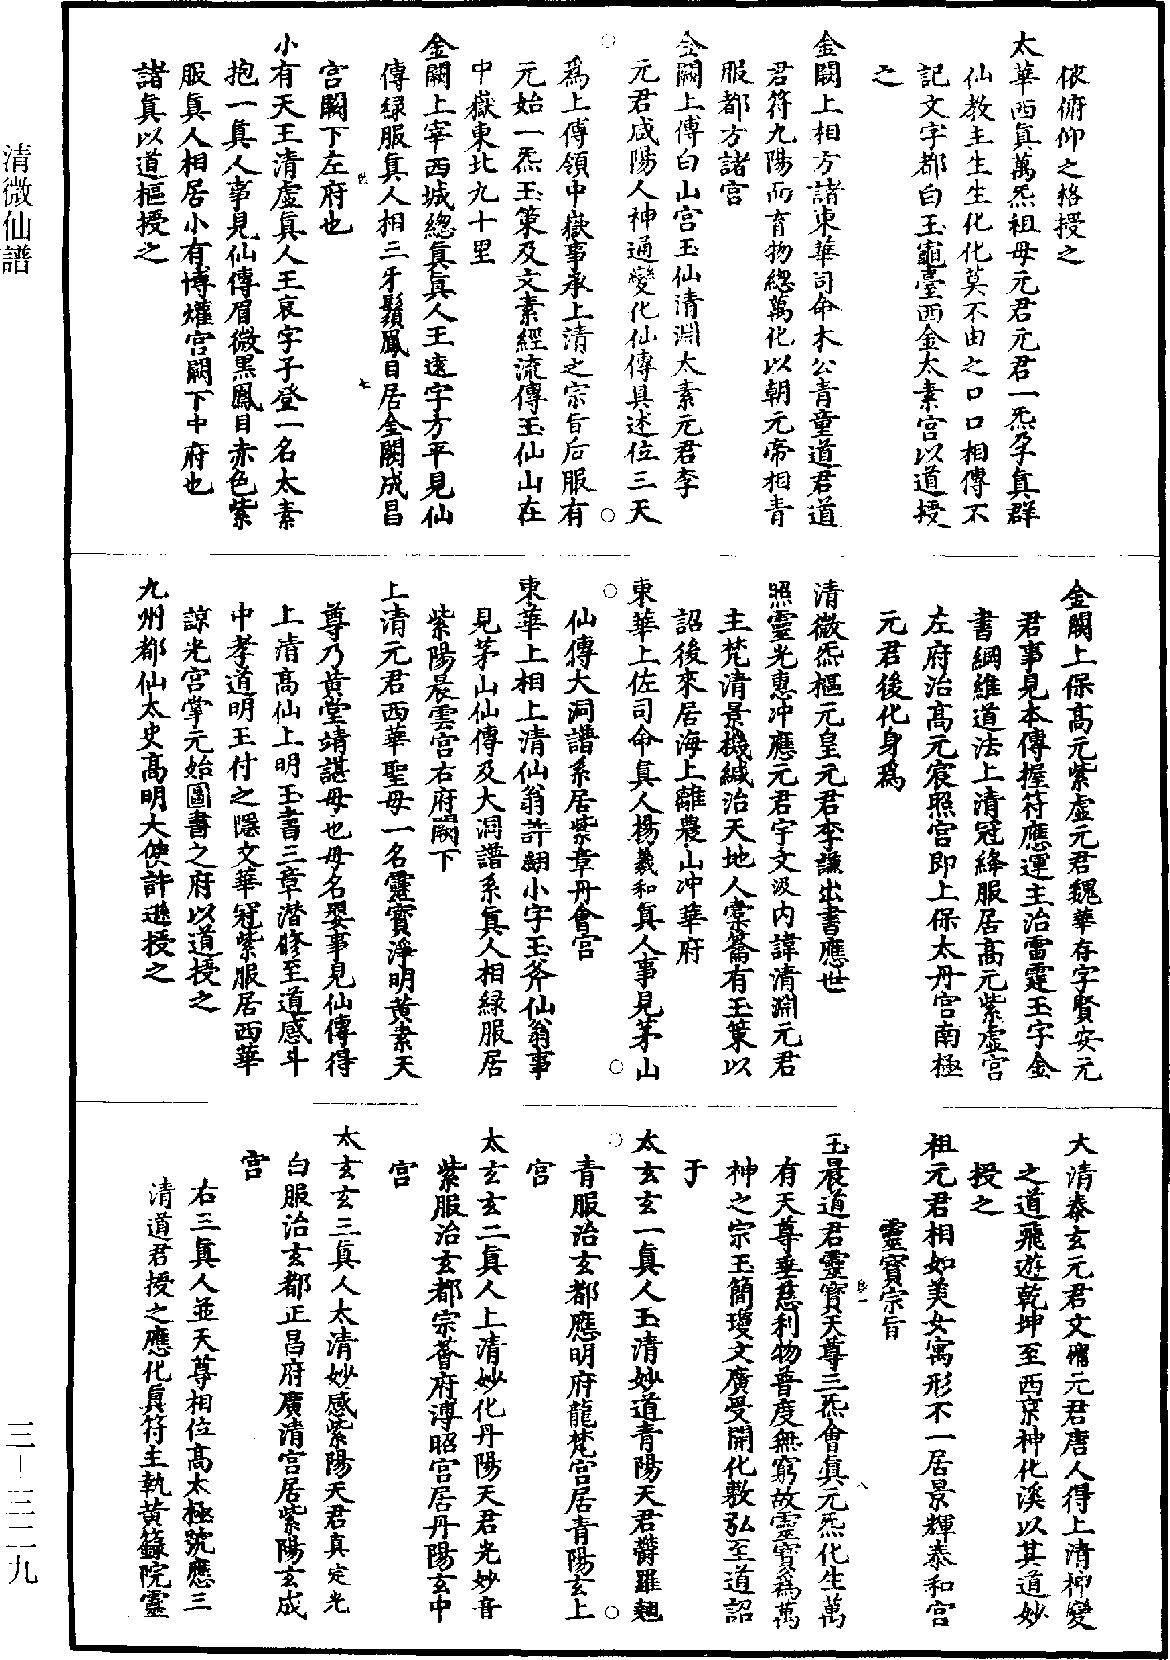 依俯仰之格授之
太華西真萬炁祖母元君元君一炁孕真群
仙教主生生化化莫不由之口口相傳不
記文字都白玉龜臺西金太素宮以道授
之
金闕上相方諸東華司命木公青童道君道
君符九陽而育物總萬化以朝元帝相青
服都方諸宮
金闕上傅白山宮玉仙清淵太素元君李
元君咸陽人神通變化仙傳具述位三天
爲上傅領中嶽事承上清之宗旨后服有
元始一炁玉策及文素經流傳玉仙山在
中嶽東北九十里
金闕上宰西城總真真人王遠字方平見仙
傳綠服真人相三牙鬚鳳目居金闕成昌
宮闕下左府也
小有天王清虛真人王裒字子登一名太素
抱一真人事見仙傳眉微黑鳳目赤色紫
服真人相居小有博爟宮闕下中府也
諸真以道樞授之
金闕上保高元紫虛元君魏華存字賢安元
君事見本傳握符應運主治雷霆玉字金
書綱維道法上清冠絳服居高元紫虛宮
左府治高元宸照宮即上保太丹宮南極
元君後化身爲
清微炁樞元皇元君李謙出書應世
照靈光惠冲應元君宇文汲內諱清淵元君
主梵清景機緘治天地人橐籥有玉策以
詔後來居海上離農山冲華府
東華上佐司命真人楊羲和真人事見茅山
仙傳大洞譜系居紫章丹會宮
東華上相上清仙翁許翽小字玉斧仙翁事
見茅山仙傳及大洞譜系真人相綠服居
紫陽晨雲宮右府闕下
上清元君西華聖母一名靈寶淨明黃素天
尊乃黃堂靖諶母也母名嬰事見仙傳得
上清高仙上明玉書三章潛修至道感斗
中孝道明王付之隱文華冠紫服居西華
諒光宮掌元始圖書之府以道授之
九州都仙太史高明大使許遜授之
大清泰玄元君文 元君唐人得上清神變
之道飛遊乾坤至西京神化溪以其道妙
授之
祖元君相如美女寓形不一居景輝泰和宮
靈寶宗旨
玉晨道君靈寶天尊三炁會真元炁化生萬
有天尊垂慈利物普度無窮故靈寶爲萬
神之宗玉簡瓊文廣受開化敷弘至道詔
于
太玄玄一真人玉清妙道青陽天君欝羅翹
青服治玄都應明府龍梵宮居青陽玄上
宮
太玄玄二真人上清妙化丹陽天君光妙音
紫服治玄都宗薈府溥昭宮居丹陽玄中
宮
太玄玄三真人太清妙感紫陽天君真定光
白服治玄都正昌府廣清宮居紫陽玄成
宮
右三真人並天尊相位高太極號應三
清道君授之應化真符主執黃籙院靈
清微仙譜
三—三二九